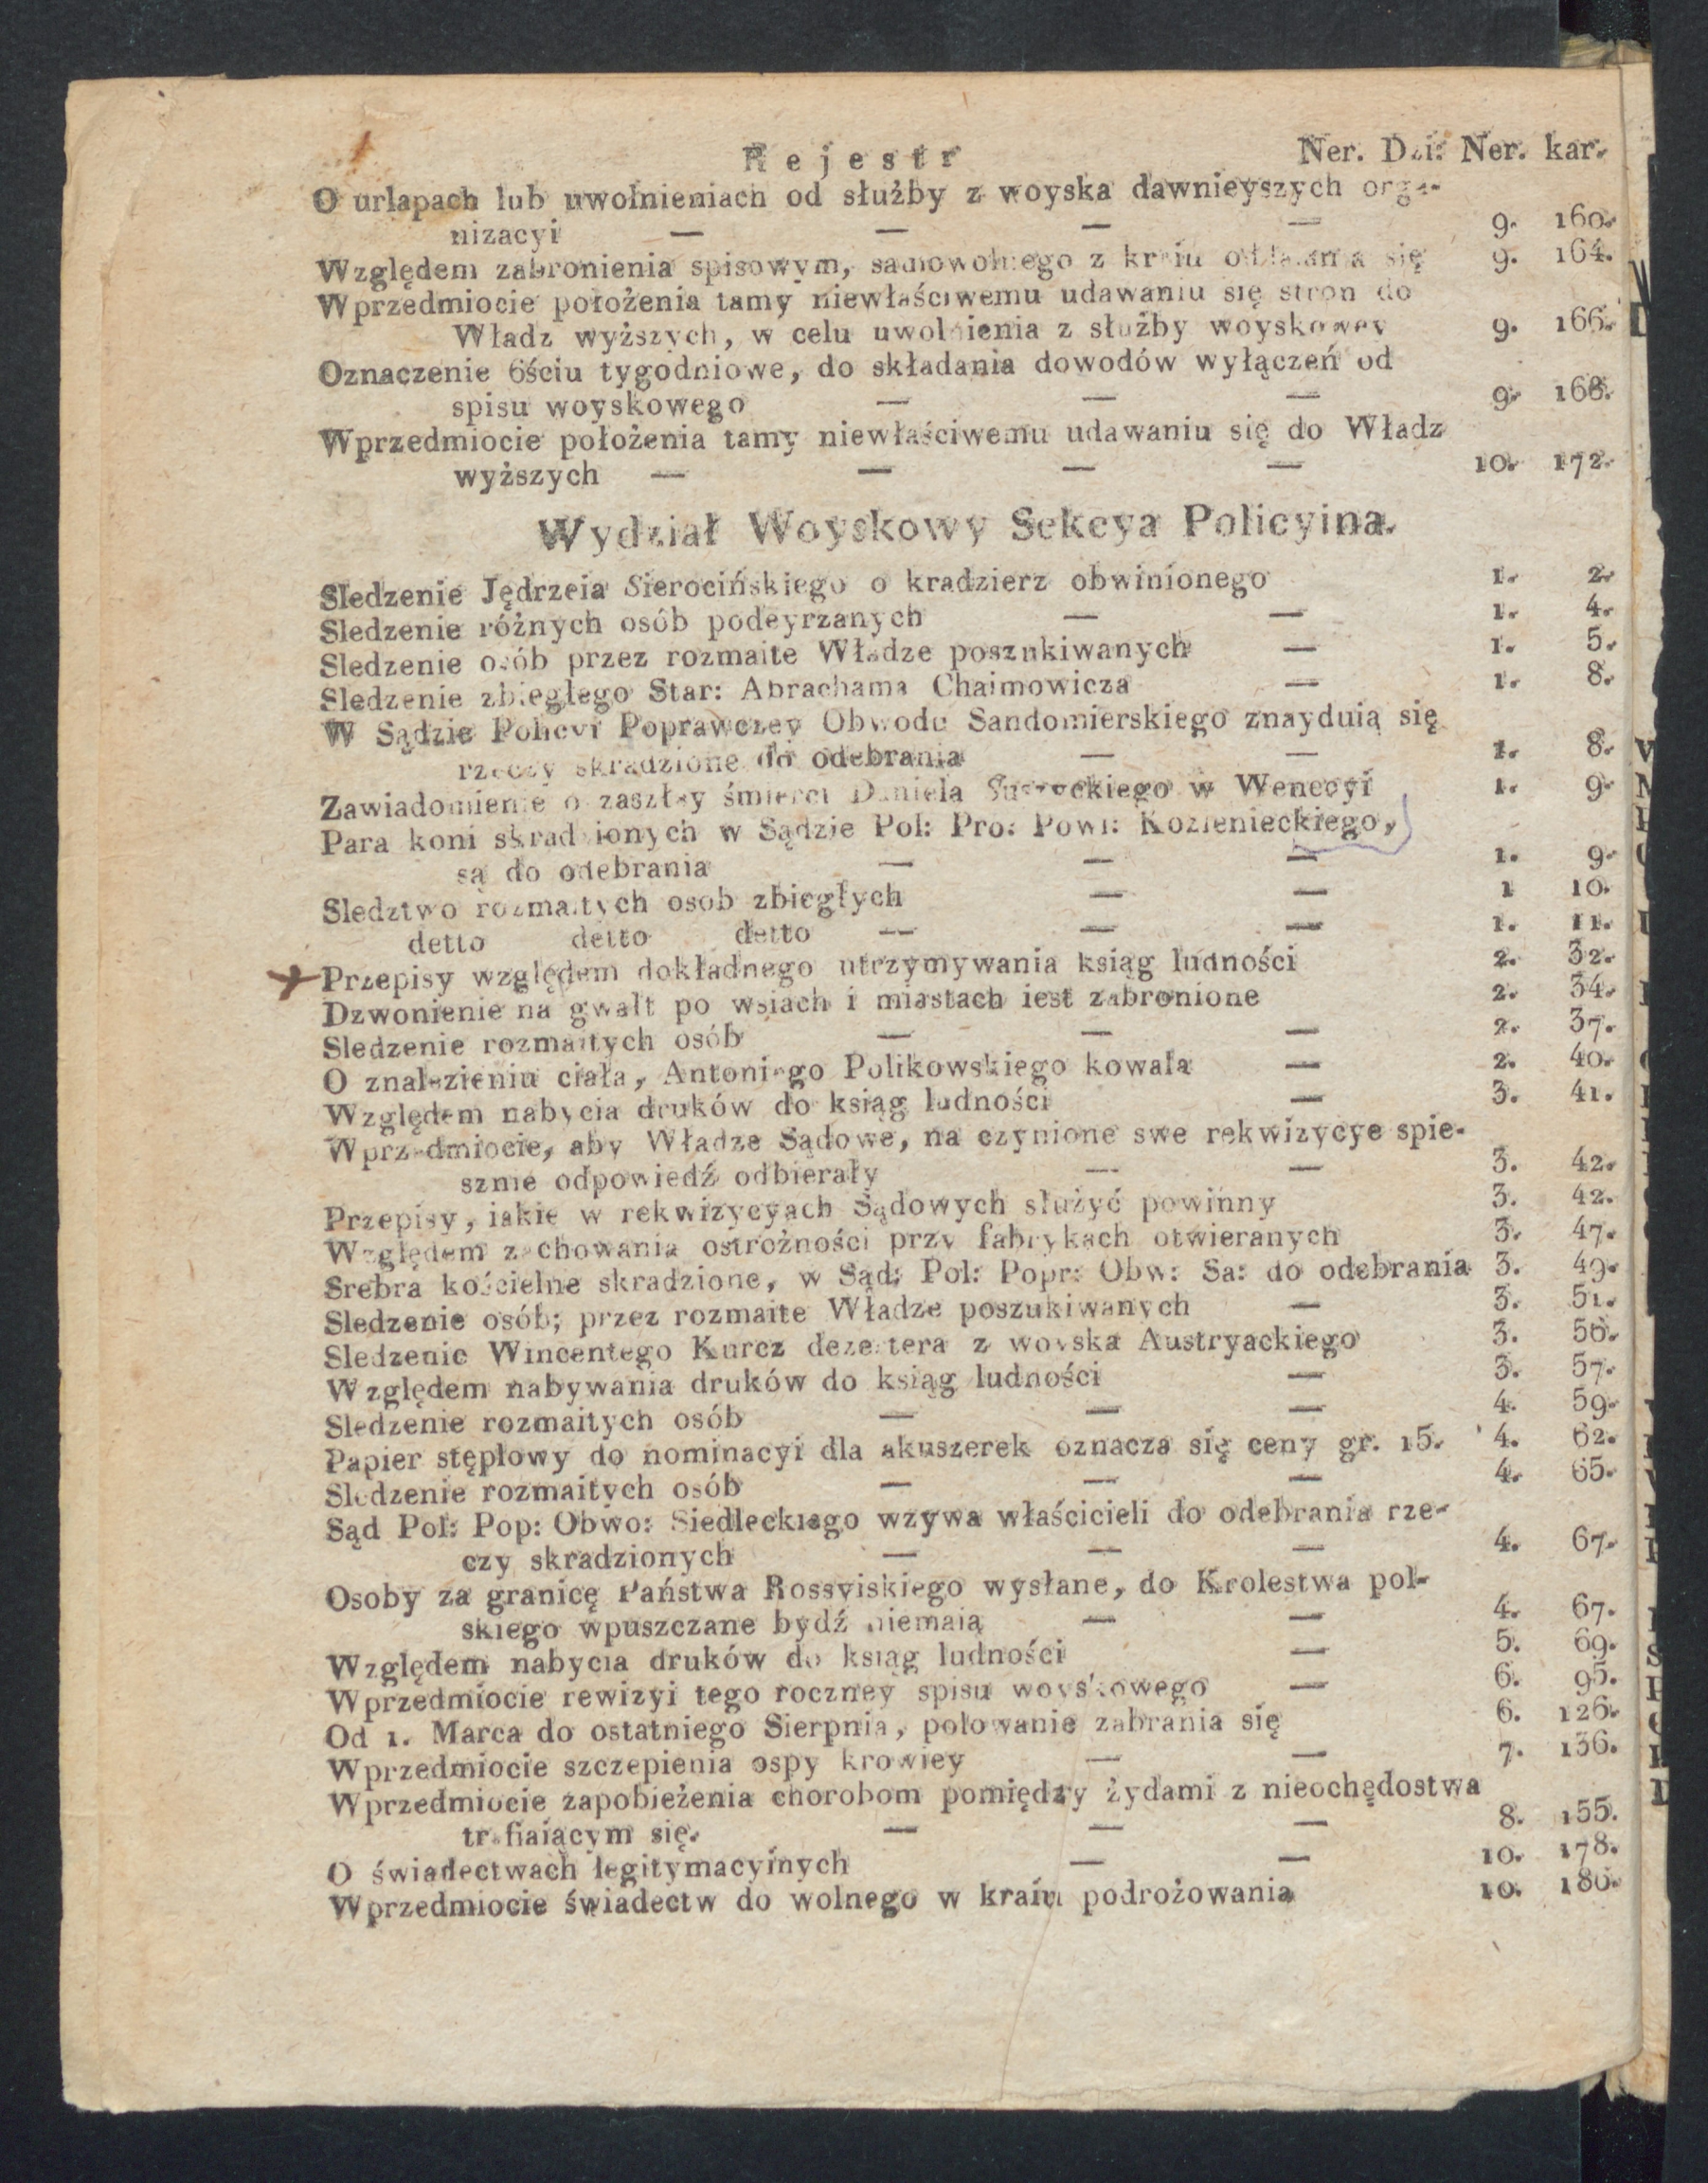 Rejestr Ner. Dzi: Ner. kar.
O urlapach lub uwolnieniach od służby z woyska dawnieyszych orga-
nizacyi — — — — 9. 160.
Względem zabronienia spisowym, samowolnego z kraiu oddalania się 9. 164.
Wprzedmiocie położenia tamy niewłaściwemu udawaniu się stron do
Władz wyższych, w celu uwolnienia z służby woyskowey 9. 166.
Oznaczenie 6ściu tygodniowe, do składania dowodów wyłączeń od
spisu woyskowego — — — 9. 168.
Wprzedmiocie położenia tamy niewłaściwemu udawaniu się do Władz
wyższych — — — — 10. 172.
Wydział Woyskowy Sekcya Policyina.
Sledzenie Jędrzeia Sierocińskiego o kradzierz obwinionego 1. 2.
Sledzenie różnych osób podeyrzanych — — 1. 4.
Sledzenie osób przez rozmaite Władze poszukiwanych — 1. 5.
Sledzenie zbiegłego Star: Abrachama Chaimowicza — 1. 8.
W Sądzie Policyi Poprawczey Obwodu Sandomierskiego znayduią się
rzeczy skradzione do odebrania — — 1. 8.
Zawiadomienie o zaszłey śmierci Daniela w Wenecyi 1. 9.
Para koni skradzionych w Sądzie Pol: Pro: Powi: Kozienieckiego,
są do odebrania — — — 1. 9.
Sledztwo rozmaitych osob zbiegłych — — 1 10.
detto detto detto — — — 1. 11.
Przepisy względem dokładnego utrzymywania ksiąg ludności 2. 32.
Dzwonienie na gwałt po wsiach i miastach iest zabronione 2. 34.
Sledzenie rozmaitych osób — — — 2. 37.
O znalezieniu ciała, Antoniego Polikowskiego kowala — 2. 40.
Względem nabycia druków do ksiąg ludności — 3. 41.
Wprzedmiocie, aby Władze Sądowe, na czynione swe rekwizycye spie-
sznie odpowiedź odbierały — — 3. 42.
Przepisy, iakie w rekwizycyach Sądowych służyć powinny 3. 42.
Względem zachowania ostrożności przy fabrykach otwieranych 3. 47.
Srebra kościelne skradzione, w Sąd: Pol: Popr: Obw: Sa: do odebrania 3. 49.
Sledzenie osób; przez rozmaite Władze poszukiwanych — 3. 51.
Sledzenie Wincentego Kurcz dezertera z woyska Austryackiego 3. 56.
Względem nabywania druków do ksiąg ludności — 3. 57.
Sledzenie rozmaitych osób — — — 4. 59.
Papier stęplowy do nominacyi dla akuszerek oznacza się ceny gr. 15. 4. 62.
Sledzenie rozmaitych osób — — — 4. 65.
Sąd Pol: Pop: Obwo: Siedleckiego wzywa właścicieli do odebrania rze-
czy skradzionych — — — 4. 67.
Osoby za granicę Państwa Rossyiskiego wysłane, do Krolestwa pol-
skiego wpuszczane bydź niemaią — — 4. 67.
Względem nabycia druków do ksiąg ludności — 5. 69.
Wprzedmiocie rewizyi tego roczney spisu woyskowego — 6. 95.
Od 1. Marca do ostatniego Sierpnia, polowanie zabrania się 6. 126.
Wprzedmiocie szczepienia ospy krowiey — — 7. 136.
Wprzedmiocie zapobieżenia chorobom pomiędzy żydami z nieochędostwa
trafiaiącym się. — — — 8. 155.
O świadectwach legitymacyinych — — 10. 178.
Wprzedmiocie świadectw do wolnego w kraiu podrożowania 10. 180.